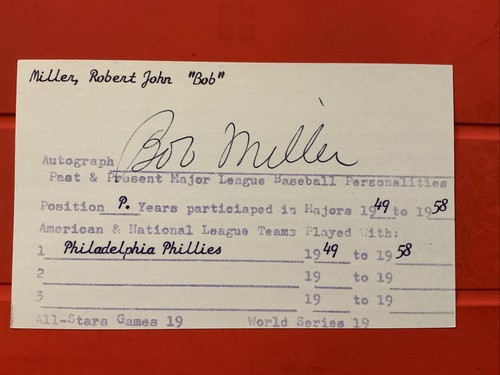 Miller, Robert John "Bob"
Bob Miller
Autograph
Past & Present Major League Baseball Personalities
Position P. Years particiaped in Majors 1949 to 1958
American & National League Teams Played With:
1 Philadelphia Phillies 1949 to 1958
2 19 to 19
3 19 to 19
All-Stars Games 19 World Series 19